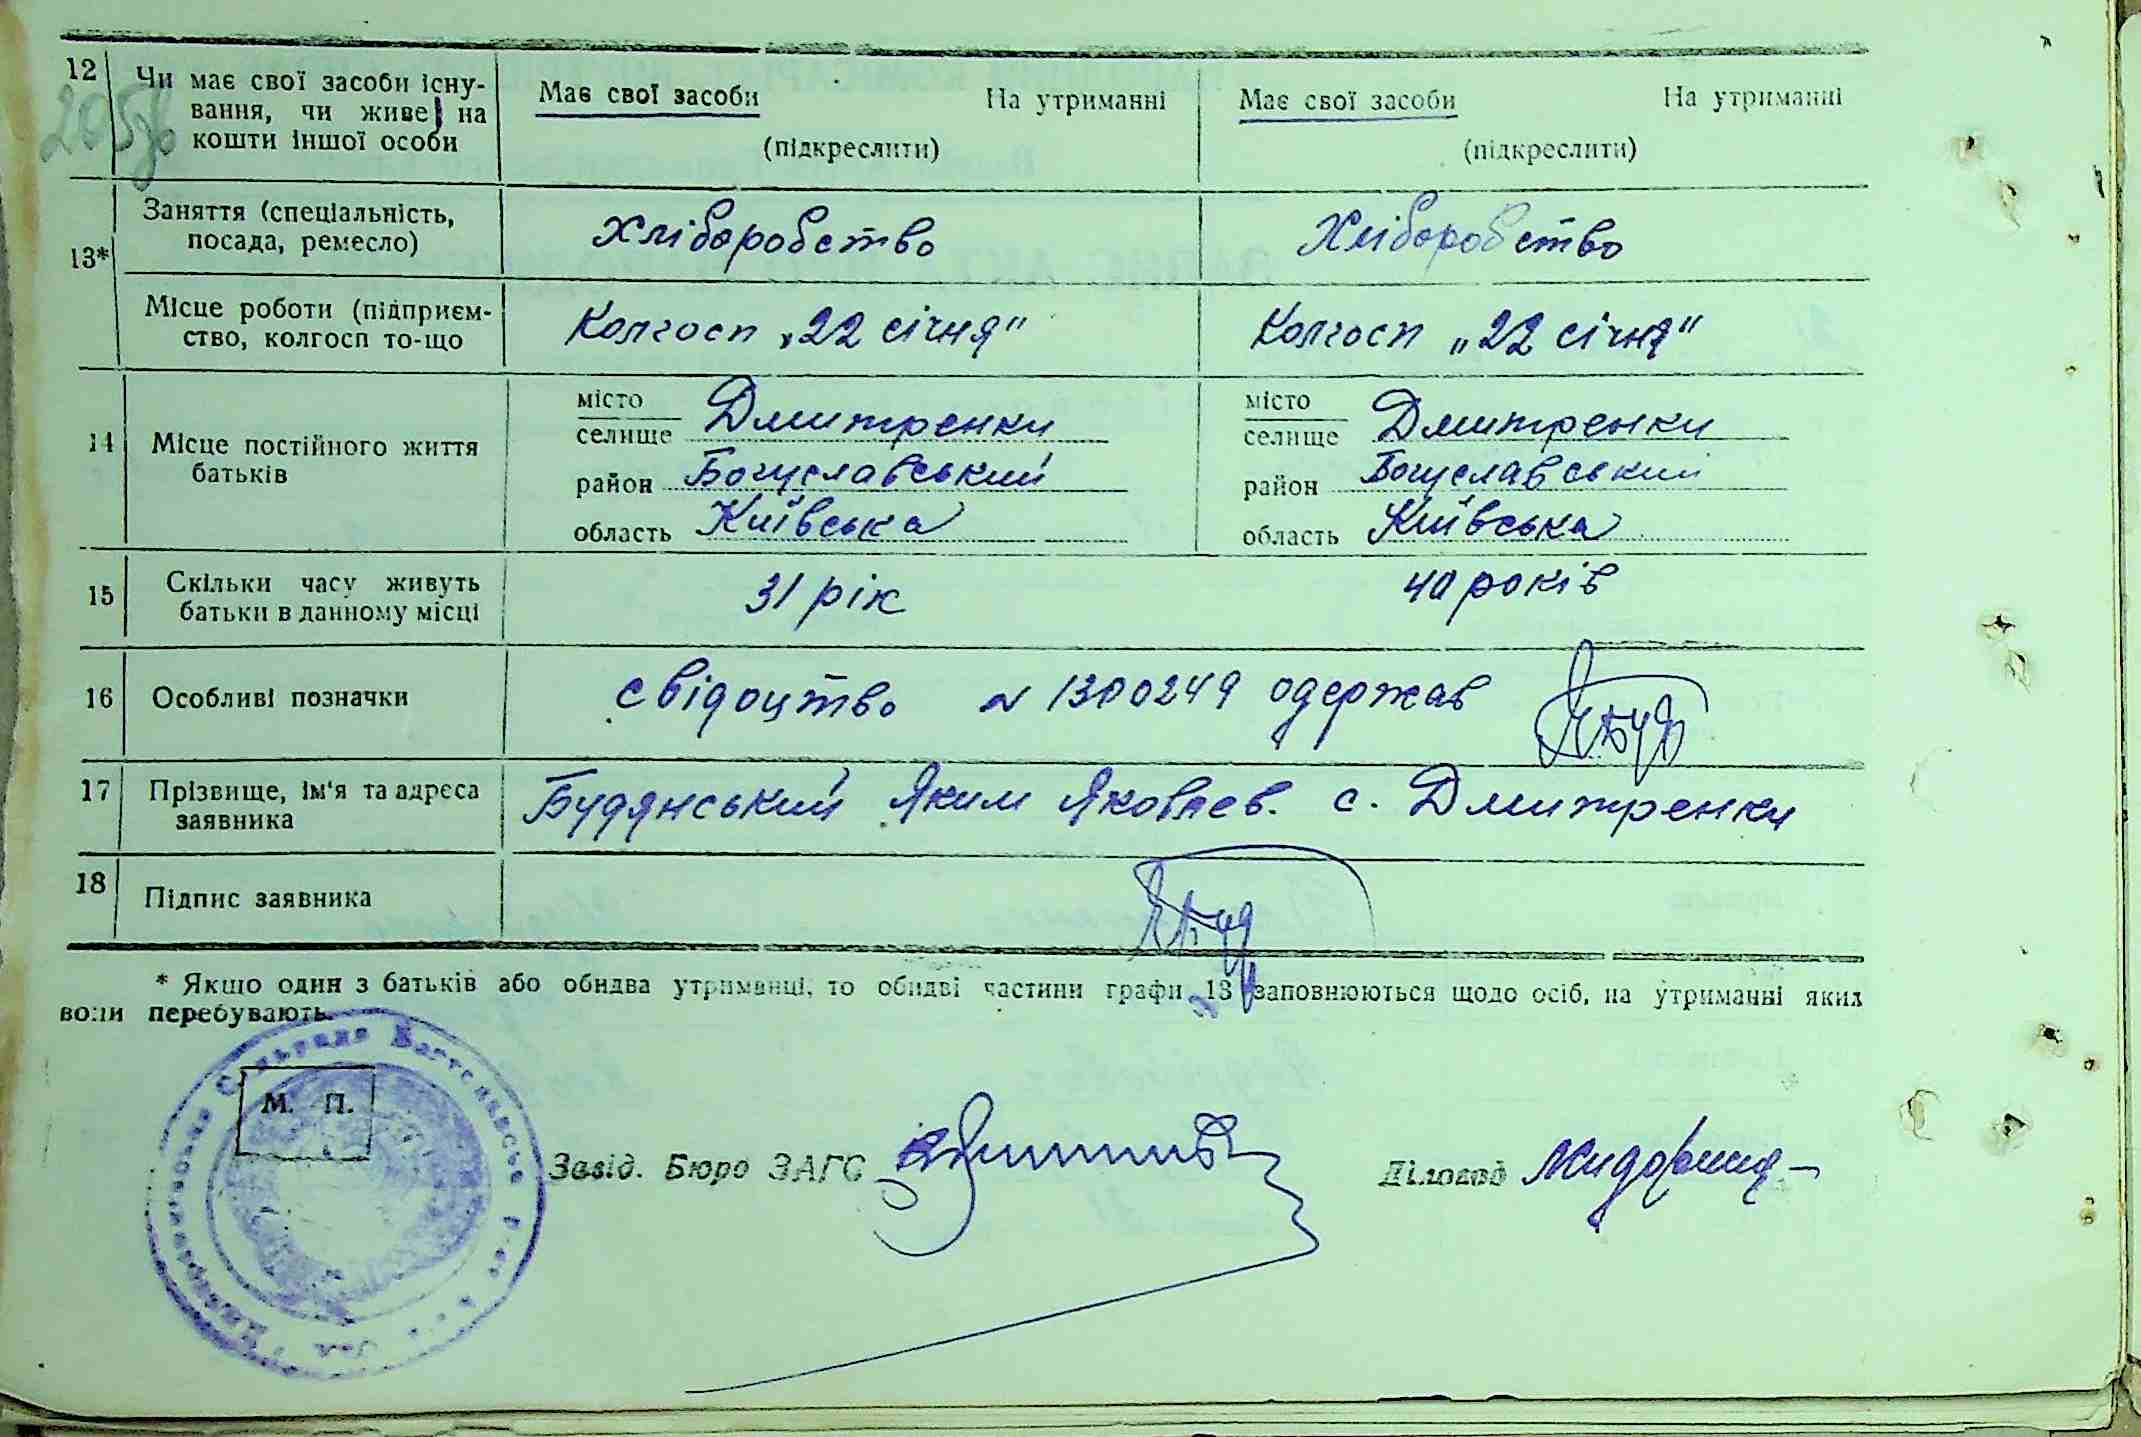 12 Чи має свої засоби існу-
вання, чи живе на
кошти іншої особи
Має свої засоби На утриманні
(підкреслити)
Має свої засоби На утриманні
(підкреслити)
205
13*
Заняття (спеціальність,
посада, ремесло)
Хліборобство
Хліборобство
Місце роботи (підприєм-
ство, колгосп то-що
Колгосп „22 січня"
Колгосп „22 січня"
14 Місце постійного життя
батьків
місто
селище Дмитренки
район Богуславський
область Київська
місто
селище Дмитренки
район Богуславський
область Київська
15 Скільки часу живуть
батьки в данному місці
31 рік
40 років
16 Особливі позначки
свідоцтво № 1300249 одержав
17 Прізвище, ім'я та адреса
заявника
Будянський Яким Яковлев. с. Дмитренки
18 Підпис заявника
* Якщо один з батьків або обидва утриманці, то обидві частини графи 13 заповнюються щодо осіб, на утриманні яких
вони перебувають.
М. П.
Завід. Бюро ЗАГС
Діловод